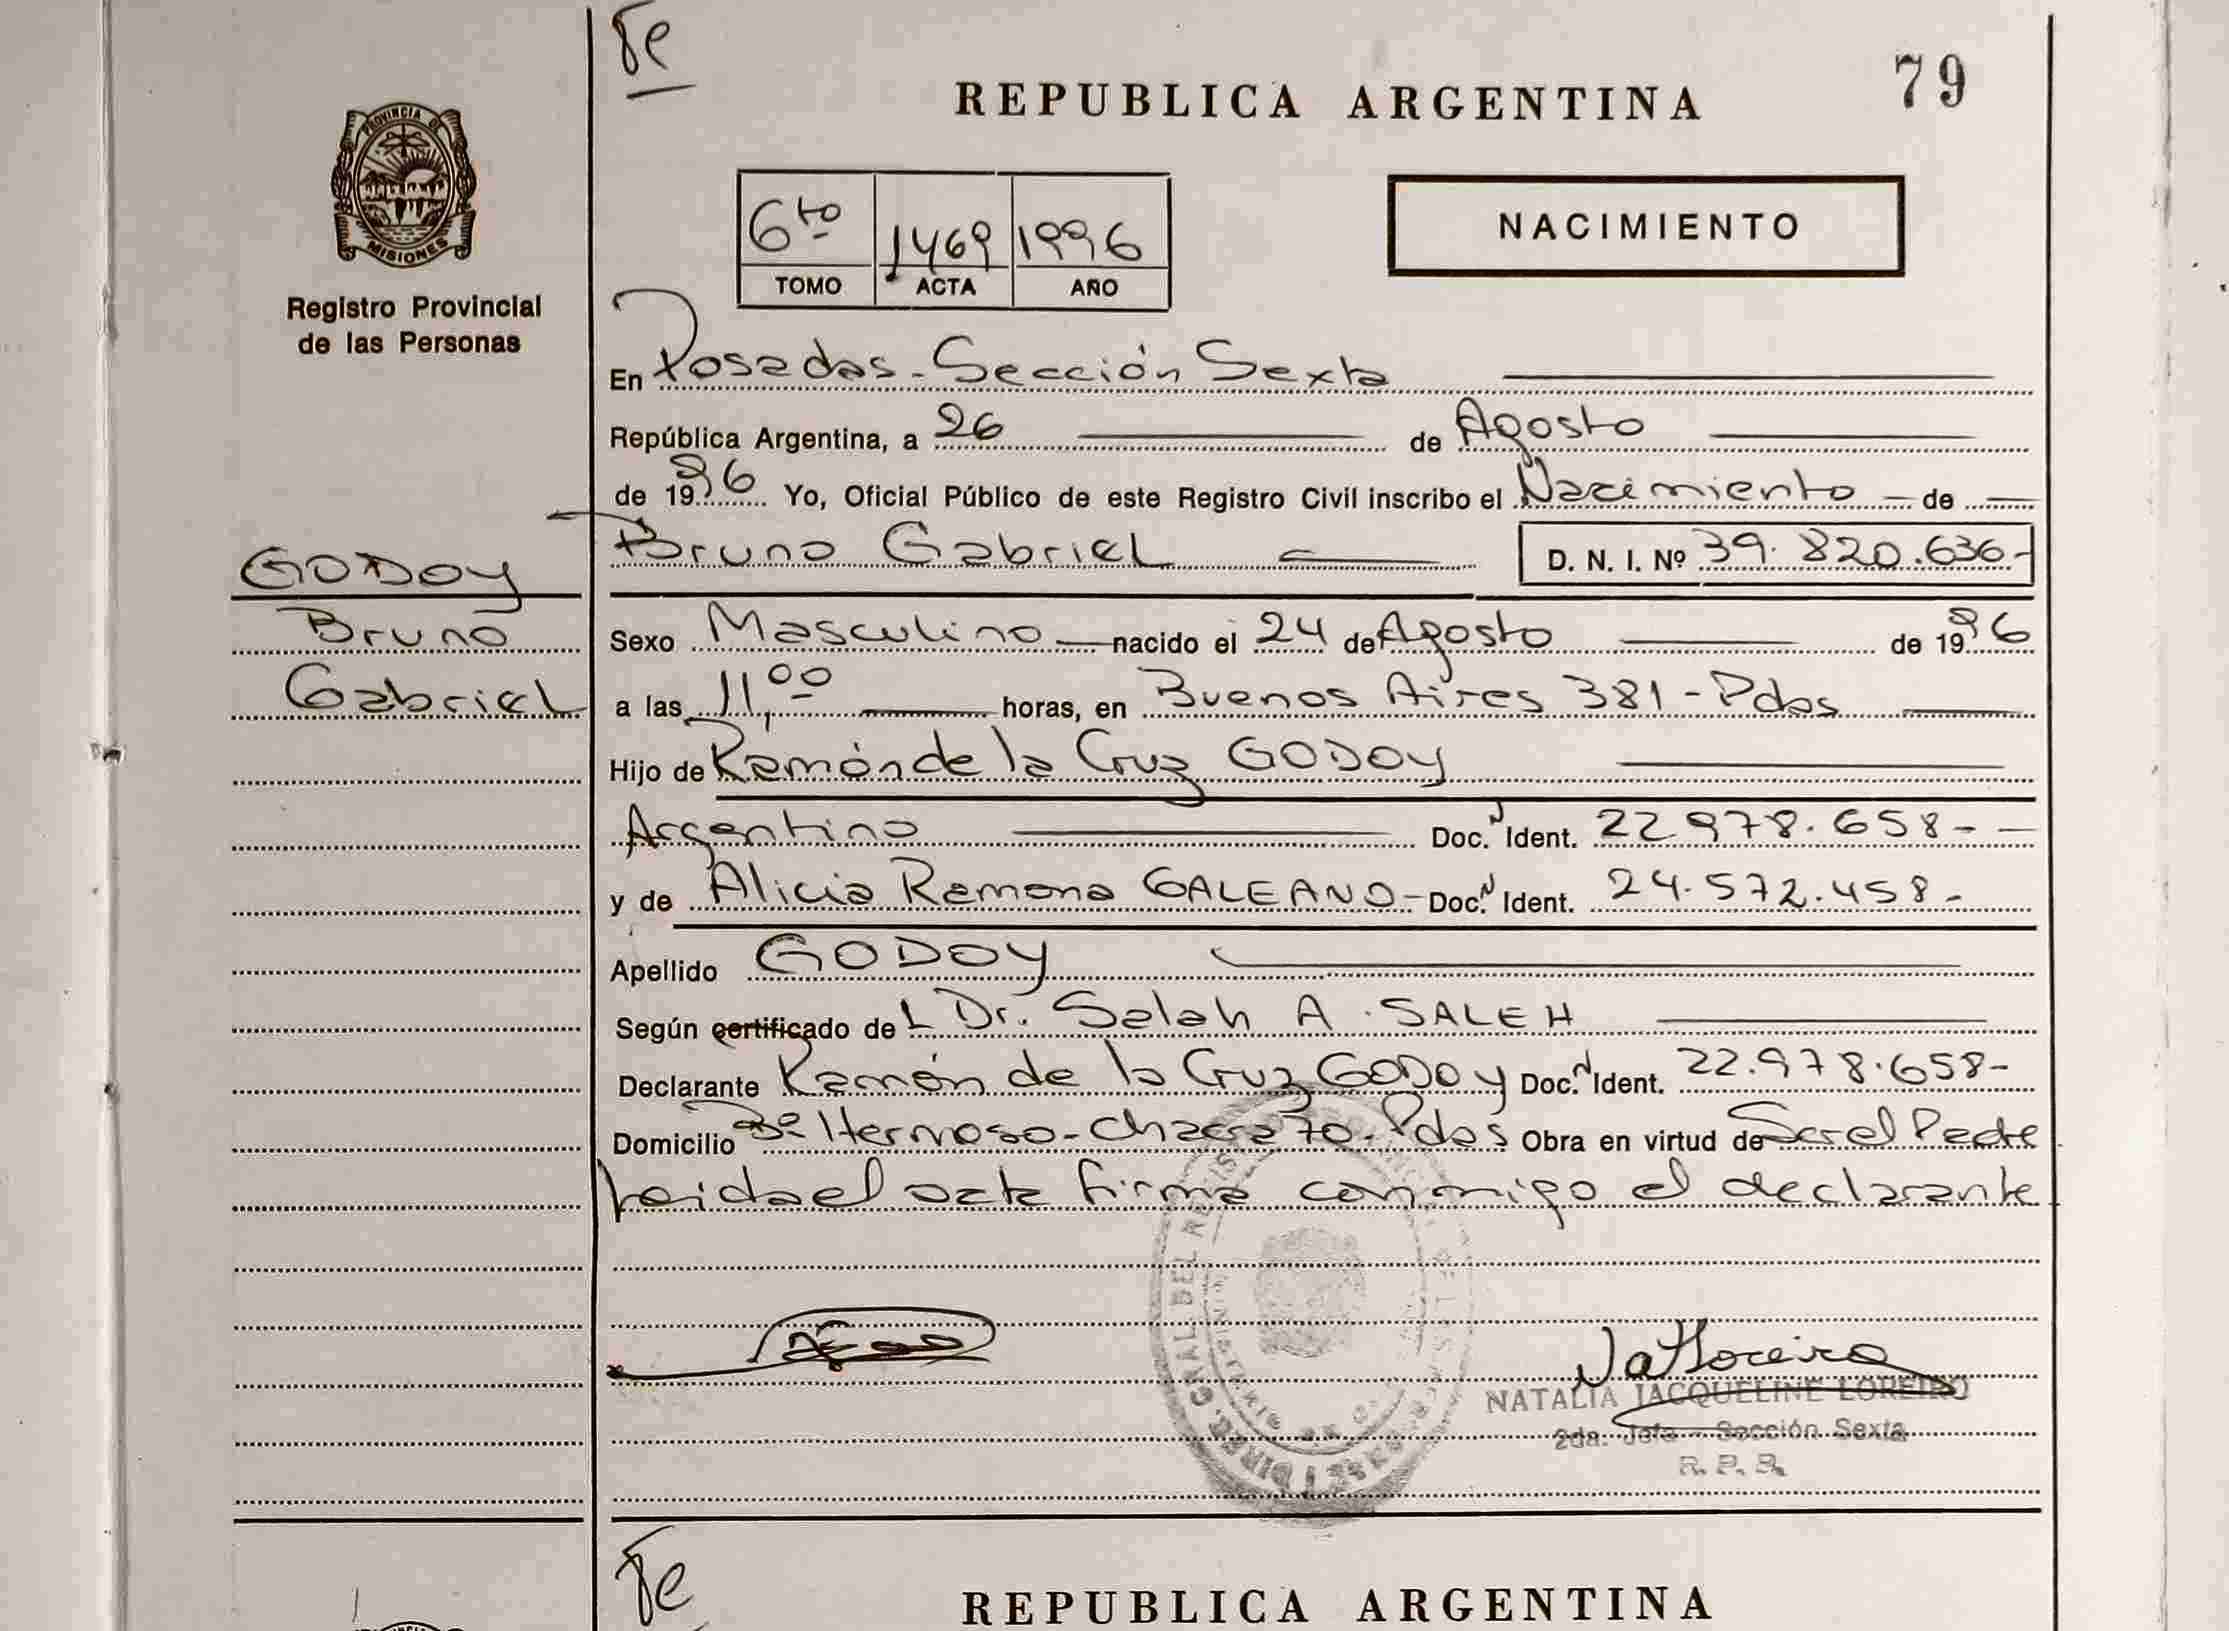 Te
79
REPUBLICA ARGENTINA
PROVINCIA DE
MISIONES
Registro Provincial
de las Personas
NACIMIENTO
6to 1469 1996
TOMO ACTA AÑO
En Posadas - Sección Sexta
República Argentina, a 26 de Agosto
de 1996 Yo, Oficial Público de este Registro Civil inscribo el Nacimiento de
Bruno Gabriel D. N. I. Nº 39.820.636-
GODOY
Bruno
Gabriel
Sexo Masculino nacido el 24 de Agosto de 1996
a las 11,00 horas, en Buenos Aires 381 - Pdas
Hijo de Ramón de la Cruz GODOY
Argentino Doc. N Ident. 22.978.658-
y de Alicia Ramona GALEANO - Doc. N Ident. 24.572.458-
Apellido GODOY
Según certificado del Dr. Salah A. SALEH
Declarante Ramón de la Cruz GODOY Doc. N Ident. 22.978.658-
Domicilio Bº Hermoso - Chacra 70. Pdas Obra en virtud de Ser el Padre
Leida el acta firma conmigo el declarante
NATALIA JACQUELINE LOREIRO
2da. Jefa - Sección Sexta
R. P. P.
Te
REPUBLICA ARGENTINA